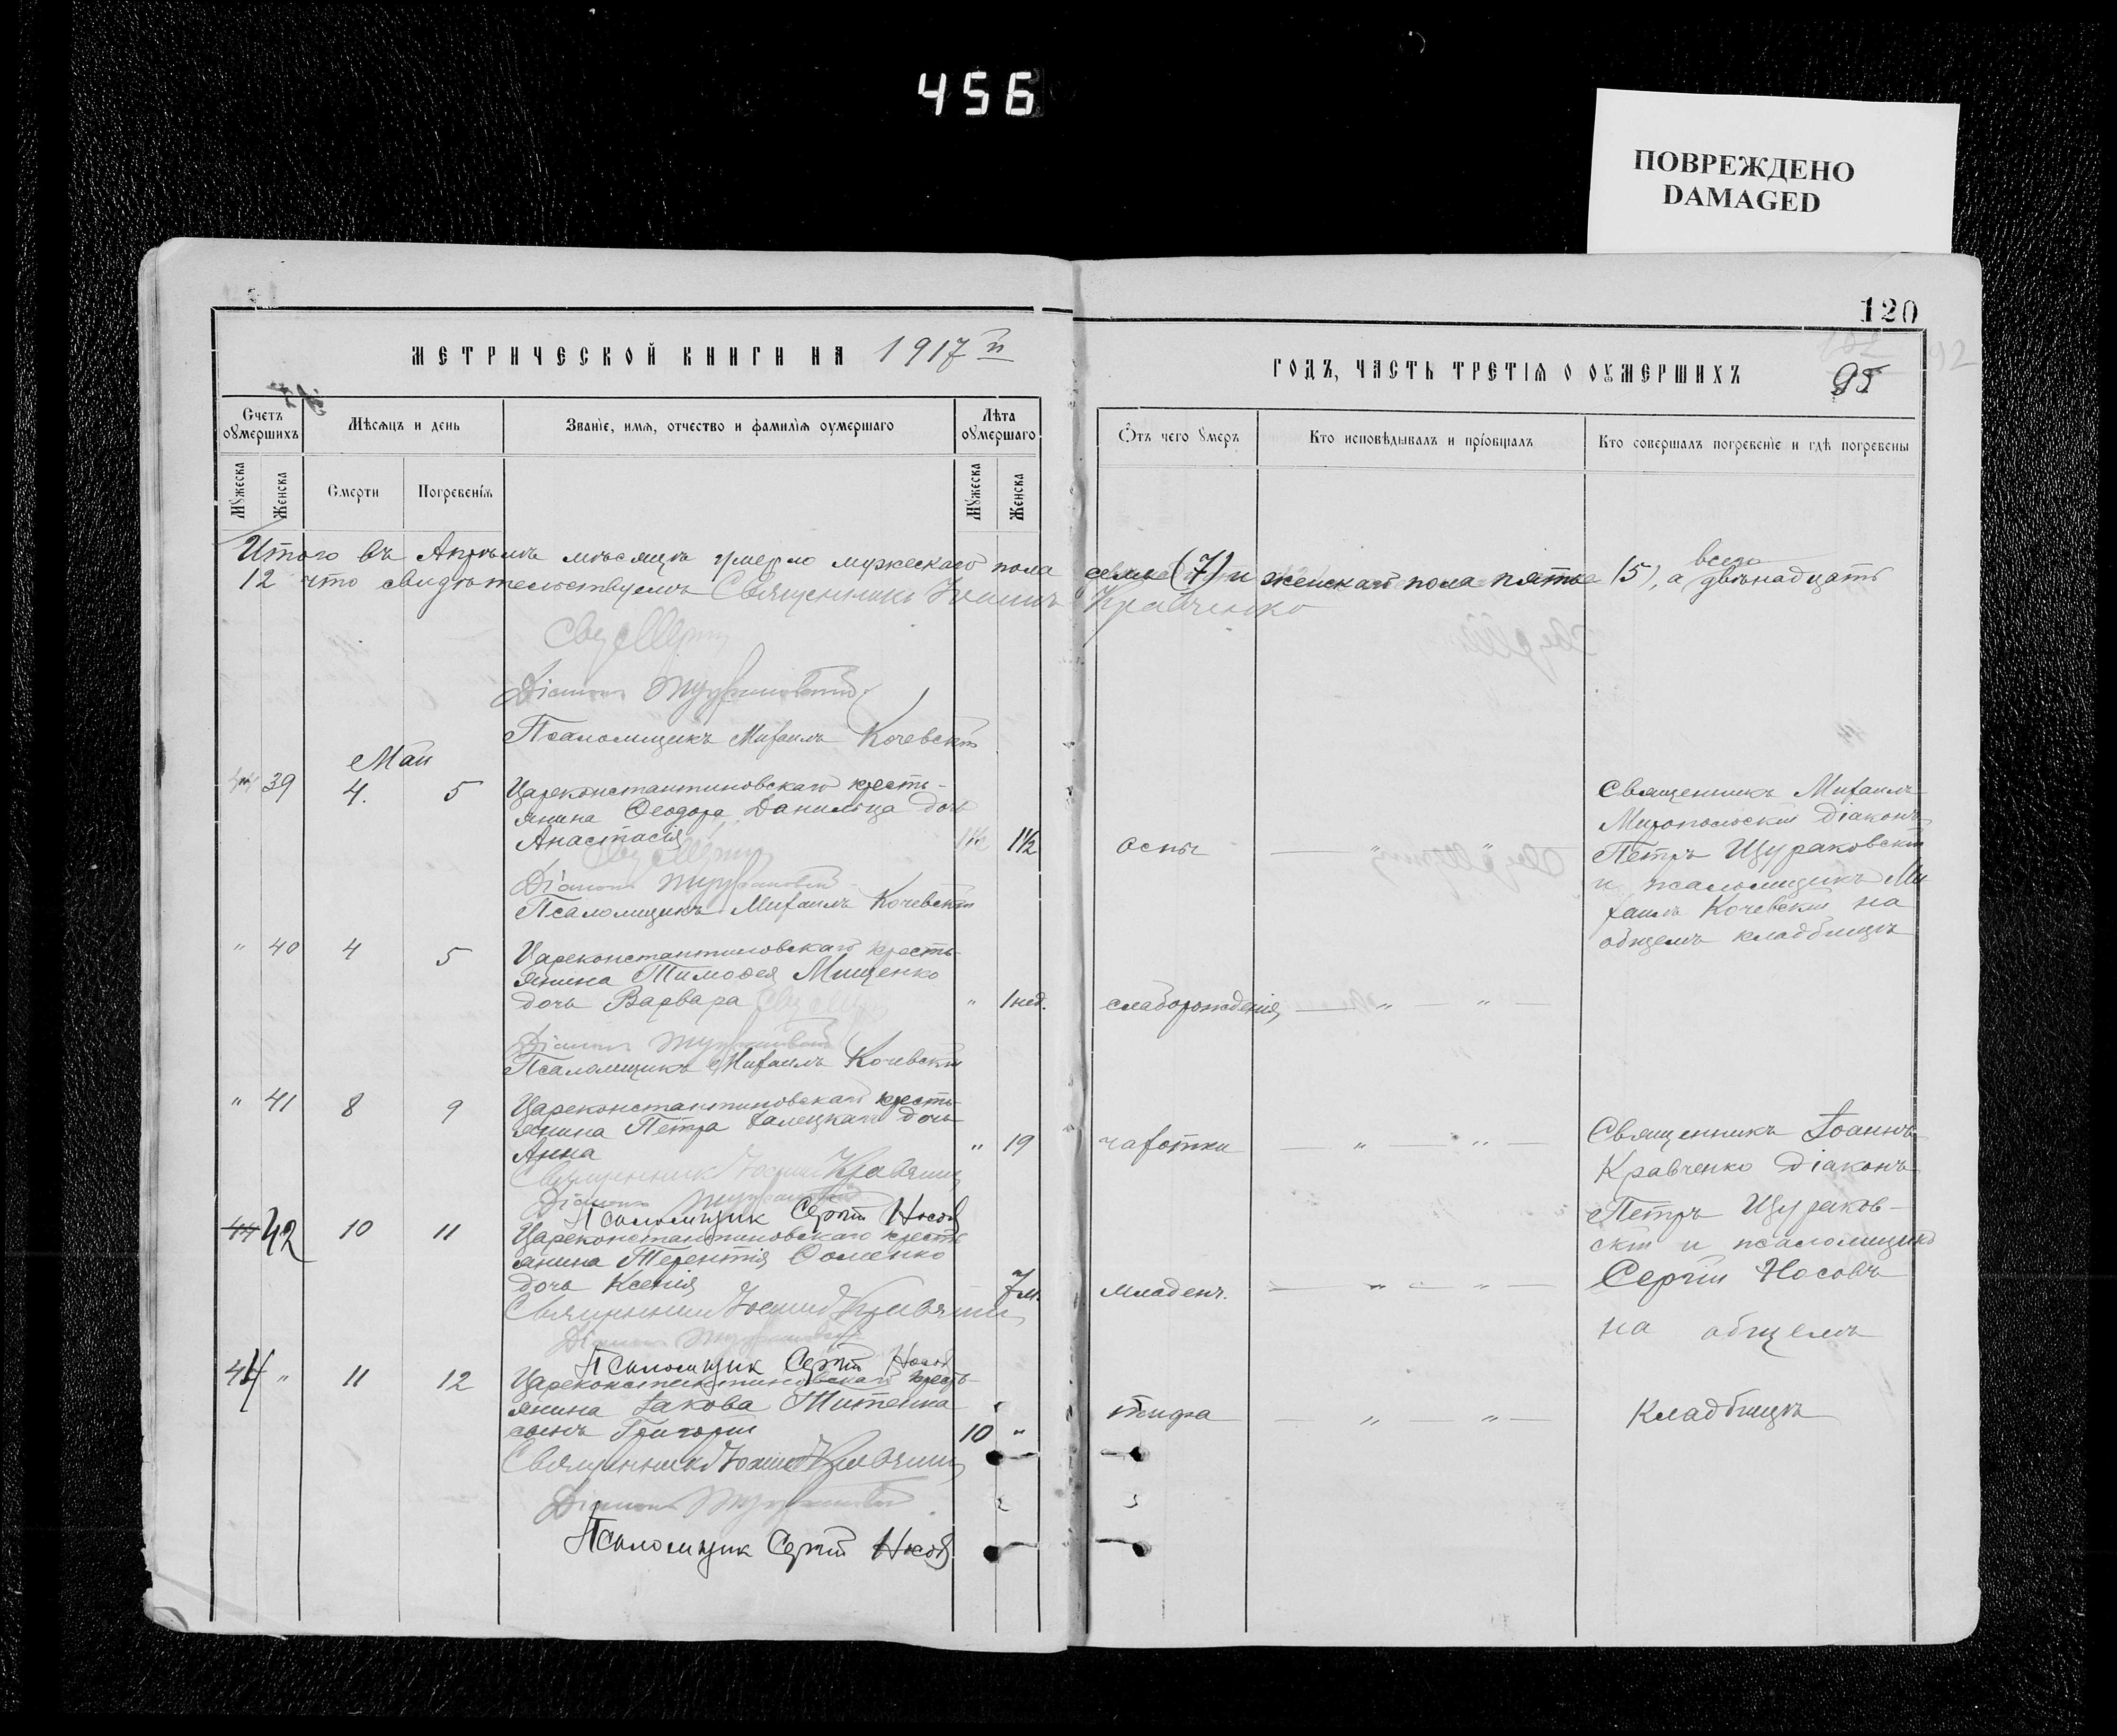 456
ПОВРЕЖДЕНО
DAMAGED
120
МЕТРИЧЕСКОЙ КНИГИ НА 1917 й
ГОДЪ, ЧАСТЬ ТРЕТІЯ О ОУМЕРШИХЪ
95
Счетъ оумершихъ
Мѣсяцъ и день
Званіе, имя, отчество и фамилія оумершаго
Лѣта оумершаго
Мужеска
Женска
Смерти
Погребенія
Мужеска
Женска
Отъ чего умеръ
Кто исповѣдывалъ и пріобщалъ
Кто совершалъ погребеніе и гдѣ погребены
Итого въ Апрѣлѣ мѣсяцѣ умерло мужескаго пола семь (7) и женскаго пола пять (5), а всего двѣнадцать
12 что свидѣтельствуемъ Священникъ Іоаннъ Кравченко
Діаконъ Щураковскій
Псаломщикъ Михаилъ Кочевскій
Май
39 4. 5 Цареконстантиновскаго кресть-
янина Ѳеодора Данильца дочь
Анастасія 1½ оспы
Діаконъ Щураковскій
Псаломщикъ Михаилъ Кочевскій
Священникъ Михаилъ
Миропольскій Діаконъ
Петръ Щураковскій
и псаломщикъ Ми
хаилъ Кочевскій на
общемъ кладбищѣ
" 40 4 5 Цареконстантиновскаго кресть-
янина Тимоѳея Мищенко
дочь Варвара " 1 нед. слаборожденія
Діаконъ Щураковскій
Псаломщикъ Михаилъ Кочевскій
" 41 8 9 Цареконстантиновскаго кресть-
янина Петра Галецкаго дочь
Анна " 19 чахотки
Священникъ Іоаннъ Кравченко
Діаконъ Щураковскій
Псаломщик Сергій Носовъ
42 10 11 Цареконстантиновскаго кресть
янина Терентія Ѳоменко
дочь Ксенія 7 м. младенч.
Священникъ Іоаннъ Кравченко
Діаконъ Щураковскій
Псаломщик Сергій Носовъ
44 " 11 12 Цареконстантиновскаго кресть-
янина Іакова Титенка
сынъ Григорій 10 " тифа
Священникъ Іоаннъ Кравченко
Діаконъ Щураковскій
Псаломщик Сергій Носовъ
Священникъ Іоаннъ
Кравченко Діаконъ
Петръ Щураков-
скій и псаломщикъ
Сергій Носовъ
на общемъ
кладбищѣ